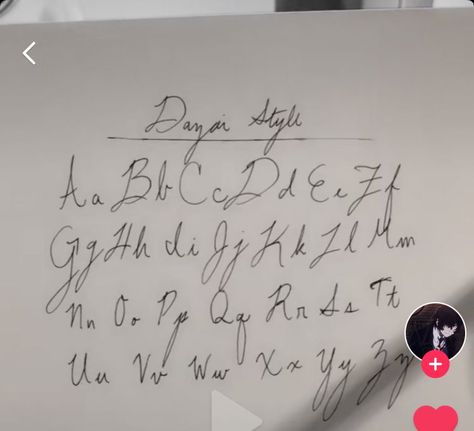 Dazai Style
Aa Bb Cc Dd Ee Ff
Gg Hh Ii Jj Kk Ll Mm
Nn Oo Pp Qq Rr Ss Tt
Uu Vv Ww Xx Yy Zz